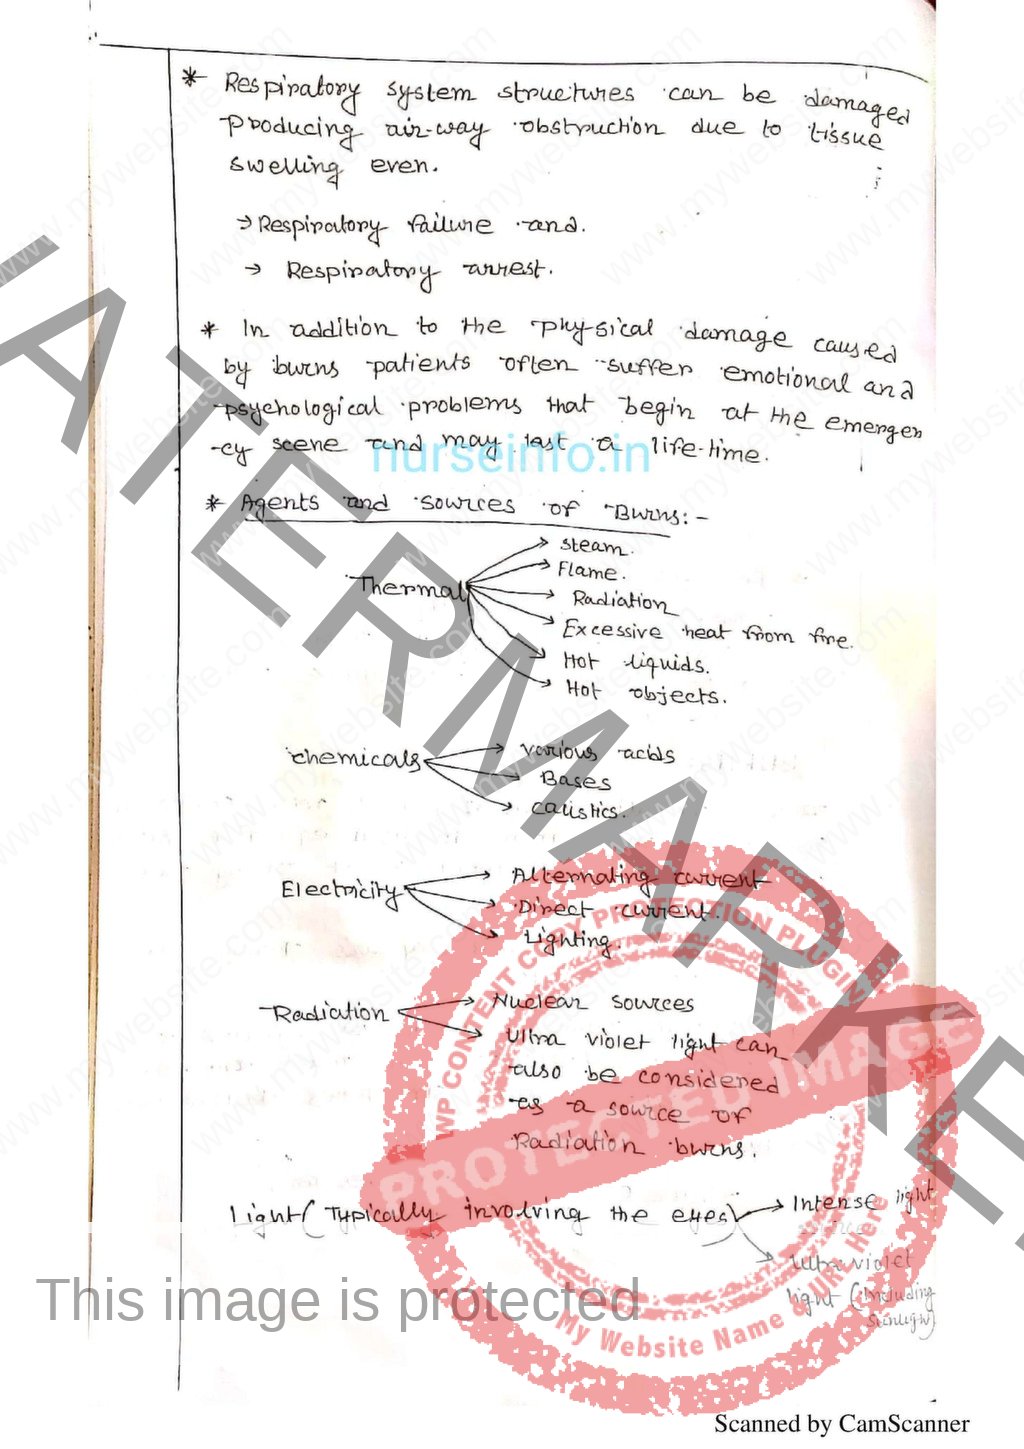 * Respiratory system structures can be damaged
producing air-way obstruction due to tissue
swelling even.
→ Respiratory failure and.
→ Respiratory arrest.
* In addition to the physical damage caused
by burns patients often suffer emotional and
psychological problems that begin at the emergen
-cy scene and may last a life-time.
nurseinfo.in
* Agents and sources of Burns:-
Thermal
→ Steam.
→ Flame.
→ Radiation
→ Excessive heat from fire.
→ Hot liquids.
→ Hot objects.
chemicals
→ various acids
→ Bases
→ caustics.
Electricity
→ Alternating current
→ Direct current.
→ Lighting.
Radiation
→ Nuclear sources
→ Ultra violet light can
also be considered
as a source of
Radiation burns.
Light (Typically involving the eyes)
→ Intense light
→ Ultra violet
light (including
sunlight)
WATERMARKED
WP CONTENT COPY PROTECTION PLUGIN
PROTECTED IMAGE
My Website Name & URL Here
This image is protected
www.mywebsite.com
Scanned by CamScanner